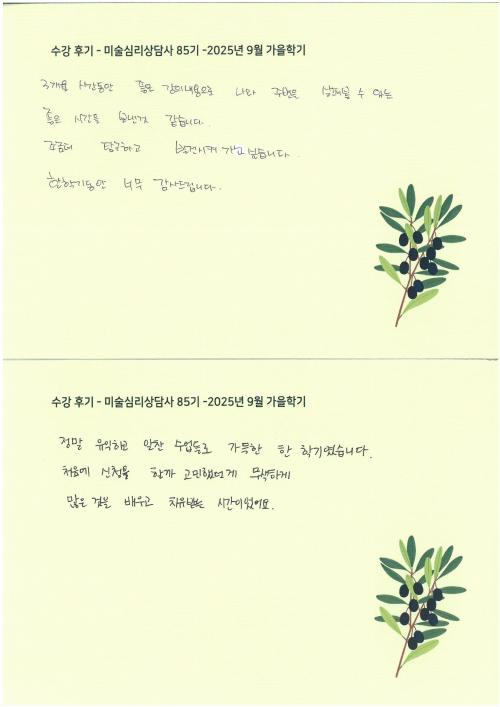 수강 후기 - 미술심리상담사 85기 -2025년 9월 가을학기
3개월 시간동안 좋은 강의내용으로 나와 주변을 살펴볼 수 있는
좋은 시간을 보낸것 같습니다.
조금더 탐구하고 발전시켜 가고 싶습니다.
한학기동안 너무 감사드립니다.
수강 후기 - 미술심리상담사 85기 -2025년 9월 가을학기
정말 유익하고 알찬 수업들로 가득한 한 학기였습니다.
처음에 신청을 할까 고민했던게 무색하게
많은 것을 배우고 치유받는 시간이었어요.